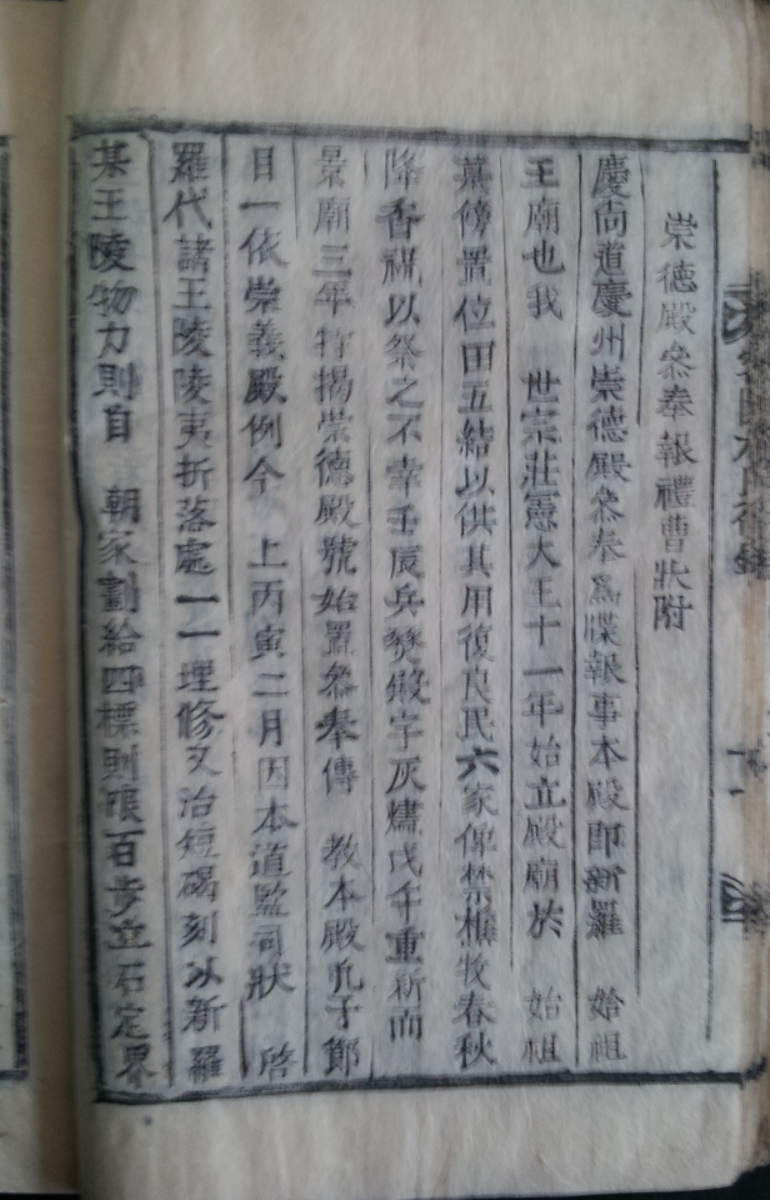 崇德殿叅奉報禮曹狀附
慶尙道慶州崇德殿叅奉爲牒報事本殿即新羅 始祖
王廟也我 世宗莊憲大王十一年始立殿廟於 始祖
傍置位田五結以供其用復良民六家俾禁樵牧春秋
降香祝以祭之不幸壬辰兵燹殿宇灰燼戊午重新而
景廟三年特揭崇德殿號始置叅奉傳 敎本殿凡子節
目一依崇義殿例今 上丙寅二月因本道監司狀 啓
羅代諸王陵陵夷折落處一一理修又治短碣刻以新羅
某王陵物力則自 朝家劃給四標則限百步立石定界